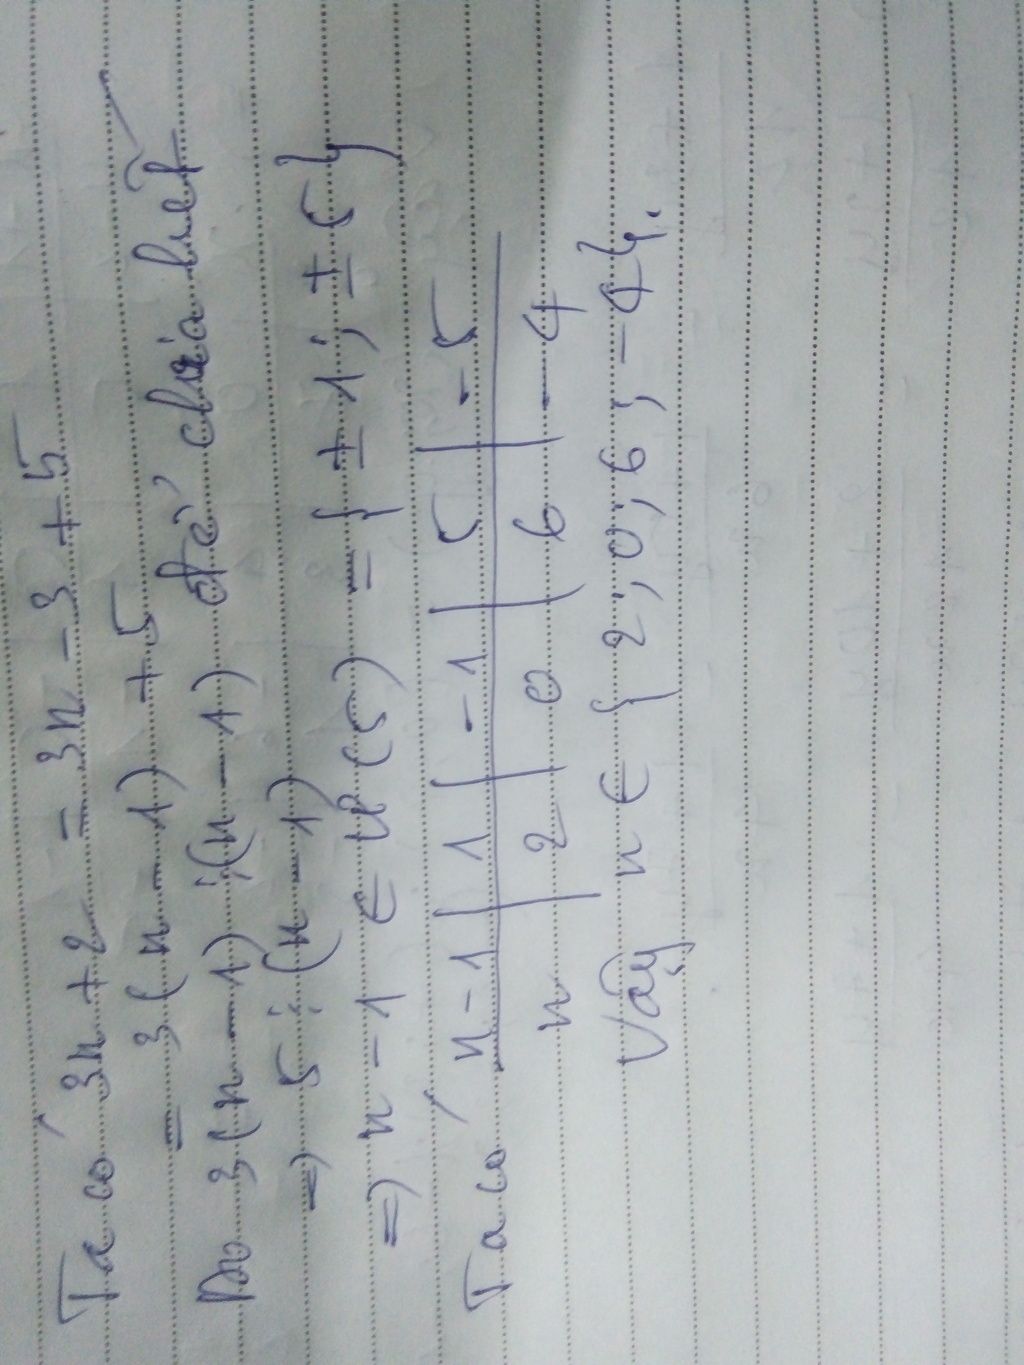 Ta có 3n + 2 = 3n - 3 + 5
= 3 (n - 1) + 5
Do 3 (n - 1) ⋮ (n - 1) đã chia hết
=> 5 ⋮ (n - 1)
=> n - 1 ∈ Ư (5) = { ± 1 ; ± 5 }
Ta có n - 1 | 1 | - 1 | 5 | - 5
n | 2 | 0 | 6 | - 4
Vậy n ∈ { 2 ; 0 ; 6 ; - 4 }.